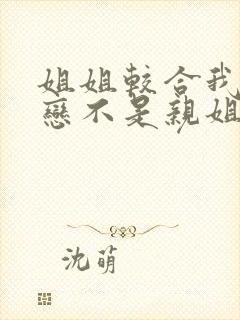 姐姐較合我
戀不是親姐
沈萌